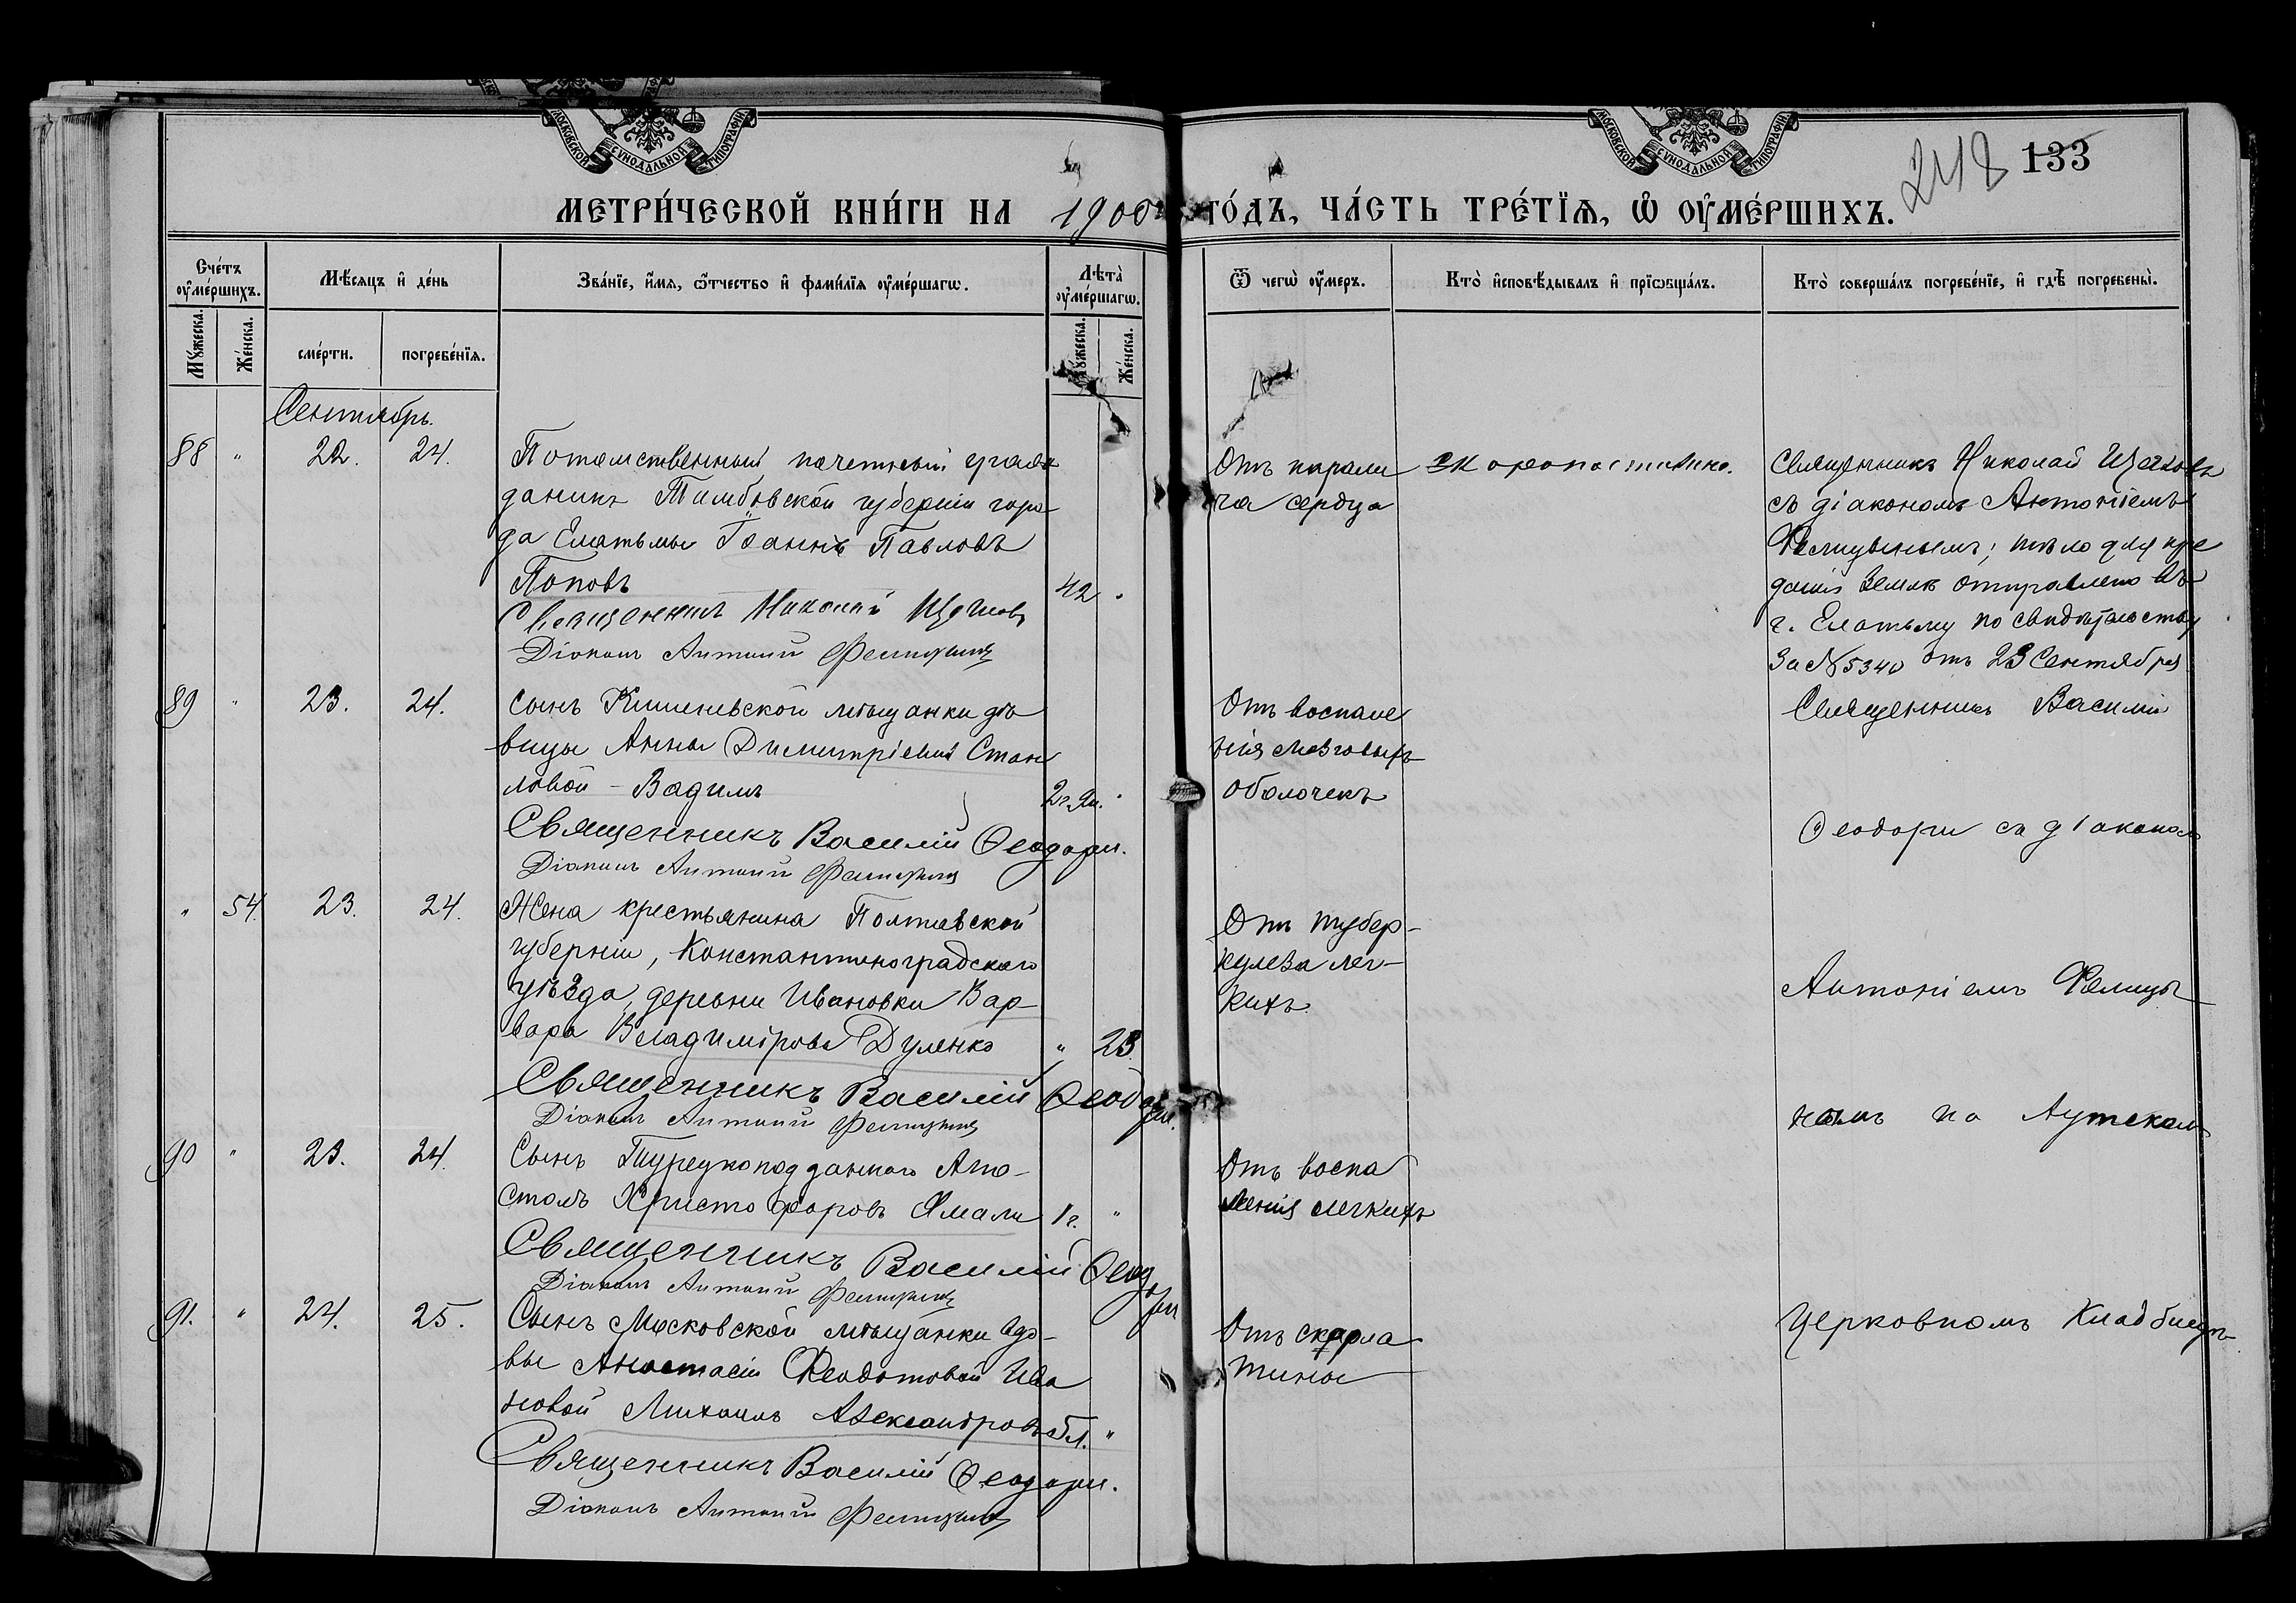 МОСКОВСКОЙ СУНОДАЛЬНОЙ ТИПОГРАФІИ
МОСКОВСКОЙ СУНОДАЛЬНОЙ ТИПОГРАФІИ
248 133
МЕТРИ́ЧЕСКОЙ КНИ́ГИ НА 1900 ГО́ДЪ, ЧА́СТЬ ТРЕ́ТЇѦ, Ѡ҆ ОУ҆МЕ́РШИХЪ.
Сче́тъ оу҆ме́ршихъ.
Мѣ́сяцъ и҆ де́нь
Зва́нїе, и҆́мѧ, ѻ҆́тчество и҆ фами́лїѧ оу҆ме́ршагѡ.
Лѣ́та оу҆ме́ршагѡ.
Ѿ чегѡ̀ оу҆́меръ.
Кто̀ и҆сповѣ́дывалъ и҆ прїѡбща́лъ.
Кто̀ соверша́лъ погребе́нїе, и҆ гдѣ̀ погребены̀.
Мꙋ́жеска.
Же́нска.
сме́рти.
погребе́нїѧ.
Мꙋ́жеска.
Же́нска.
Сентябрь.
88 " 22. 24.
Потомственный почетный граж
данинъ Тамбовской губерніи горо
да Елатьмы Іоаннъ Павловъ
Поповъ 42 "
Священникъ Николай
Діаконъ Антоній
Отъ парали
ча сердца
Скоропостижно.
Священникъ Николай
съ діакономъ Антоніемъ
тѣло для пре
данія землѣ отправлено въ
г. Елатьму по свидѣтельству
за №5340 отъ 23 Сентября
89 " 23. 24.
Сынъ Кишиневской мѣщанки дѣ
вицы Анны Димитріевой
ловой - Вадимъ "
Священникъ Василій Ѳеодори.
Діаконъ Антоній
Отъ воспале
нія мозговыхъ
оболочекъ
Священникъ Василій
Ѳеодори съ діакономъ
" 54. 23. 24.
Жена крестьянина Полтавской
губерніи, Константиноградскаго
уѣзда, деревни Ивановки Вар
вара Владимірова Дуленко " 23.
Священникъ Василій Ѳеодори.
Діаконъ Антоній
Отъ тубер-
кулеза лег-
кихъ.
Антоніемъ
нымъ на Аутскомъ
90 " 23. 24.
Сынъ Турецкоподданнаго Апо-
столъ Христофоровъ 1 г. "
Священникъ Василій Ѳеодори
Діаконъ Антоній
Отъ воспа
ленія легкихъ
91. " 24. 25.
Сынъ Московской мѣщанки вдо-
вы Анастасіи Ѳеодотовой Ива
новой Михаилъ Александровъ "
Священникъ Василій Ѳеодори.
Діаконъ Антоній
Отъ скарла
тины
Церковномъ Кладбищѣ